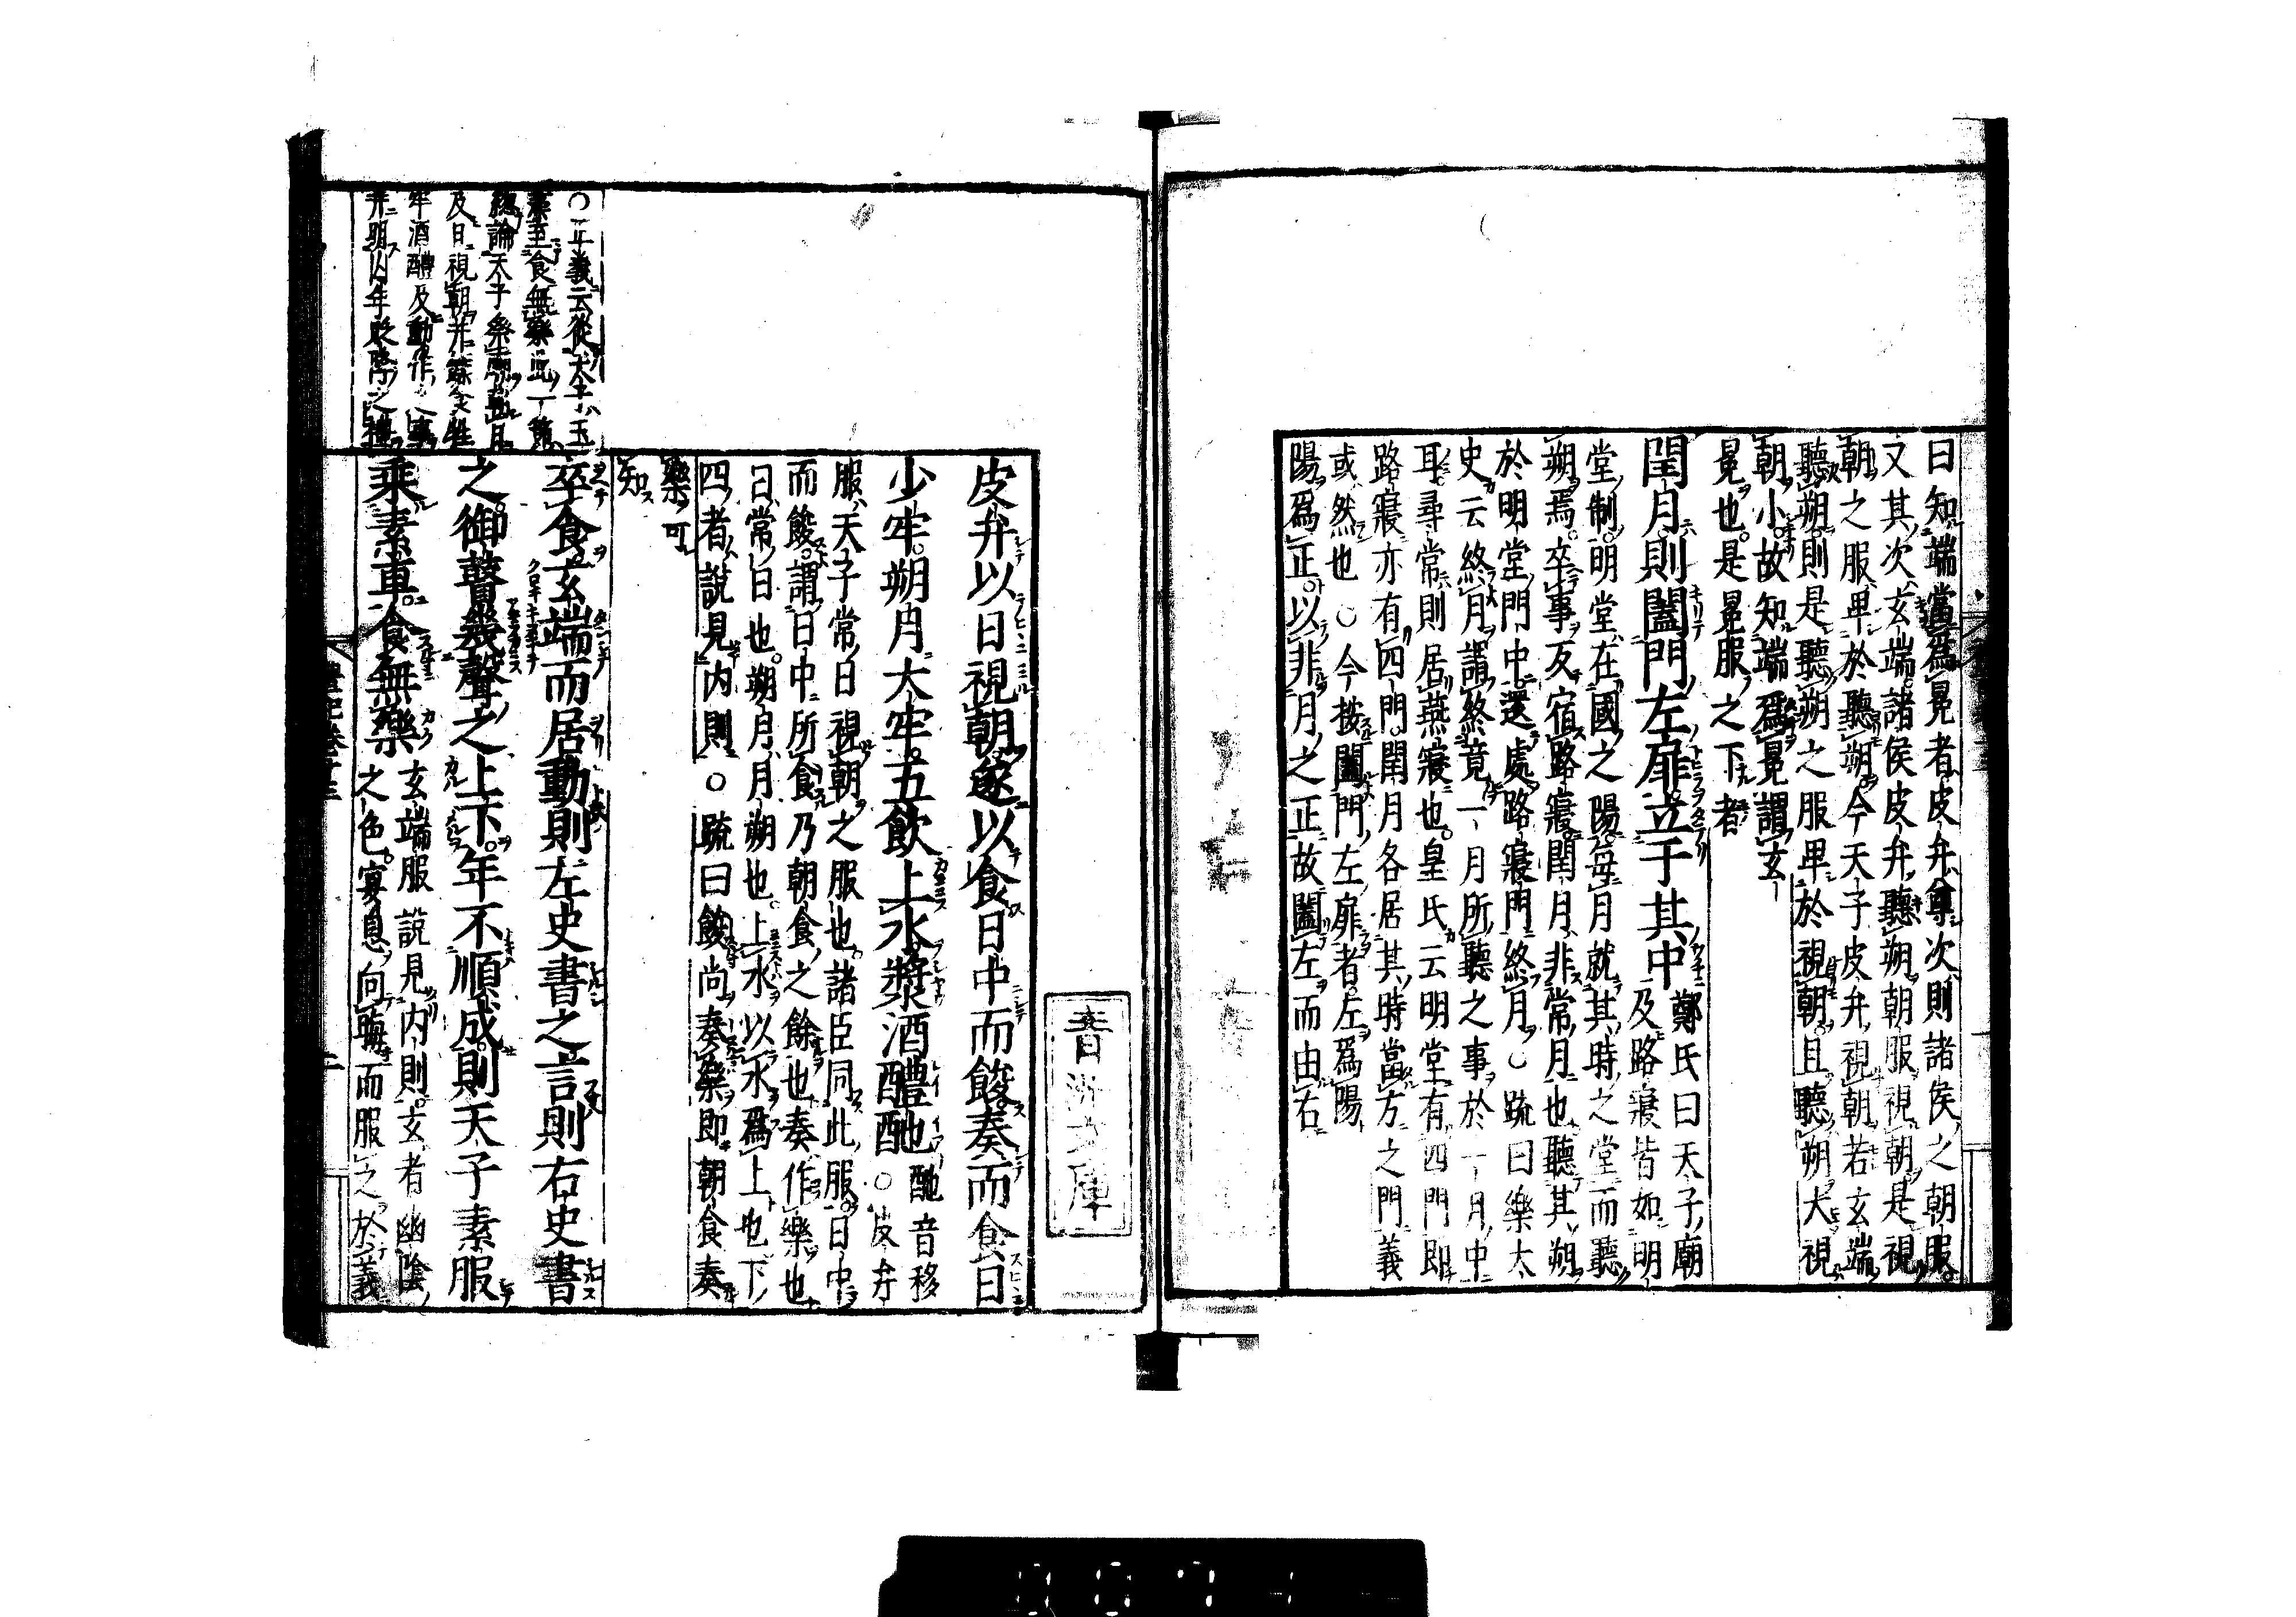 曰知端當爲冕者皮弁尊次則諸侯之朝服
又其次玄端諸侯皮弁聽朔朝服視朝是視
朝之服卑於聽朔今天子皮弁視朝若玄端
聽朔則是聽朔之服卑於視朝且聽朔大視
朝小故知端爲冕謂玄
冕也是冕服之下者
閏月則闔門左扉立于其中
鄭氏曰天子廟
及路寢皆如明
堂制明堂在國之陽每月就其時之堂而聽
朔焉卒事反宿路寢閏月非常月也聽其朔
於明堂門中還處路寢門終月○疏曰樂太
史云終月謂終竟一月所聽之事於一月中
耳尋常則居燕寢也皇氏云明堂有四門即
路寢亦有四門閏月各居其時當方之門義
或然也○今按闔門左扉者左爲陽
陽爲正以非月之正故闔左而由右
皮弁以日視朝遂以食日中而餕奏而食日
少牢朔月大牢五飲上水漿酒醴酏
酏音移
○皮弁
服天子常日視朝之服也諸臣同此服日中
而餕謂日中所食乃朝食之餘也奏作樂也
日常日也朔月月朔也上水以水爲上也下
四者說見内則○疏曰餕尚奏樂即朝食奏
樂可
知
○正義云從天子玉
藻至食無樂此一節
總論天子祭廟朔月
及日視朝并饌食牲
牢酒醴及動作之事
并明凶年貶降之禮
卒食玄端而居動則左史書之言則右史書
之御瞽幾聲之上下年不順成則天子素服
乘素車食無樂
玄端服說見内則玄者幽陰
之色宴息向晦而服之於義